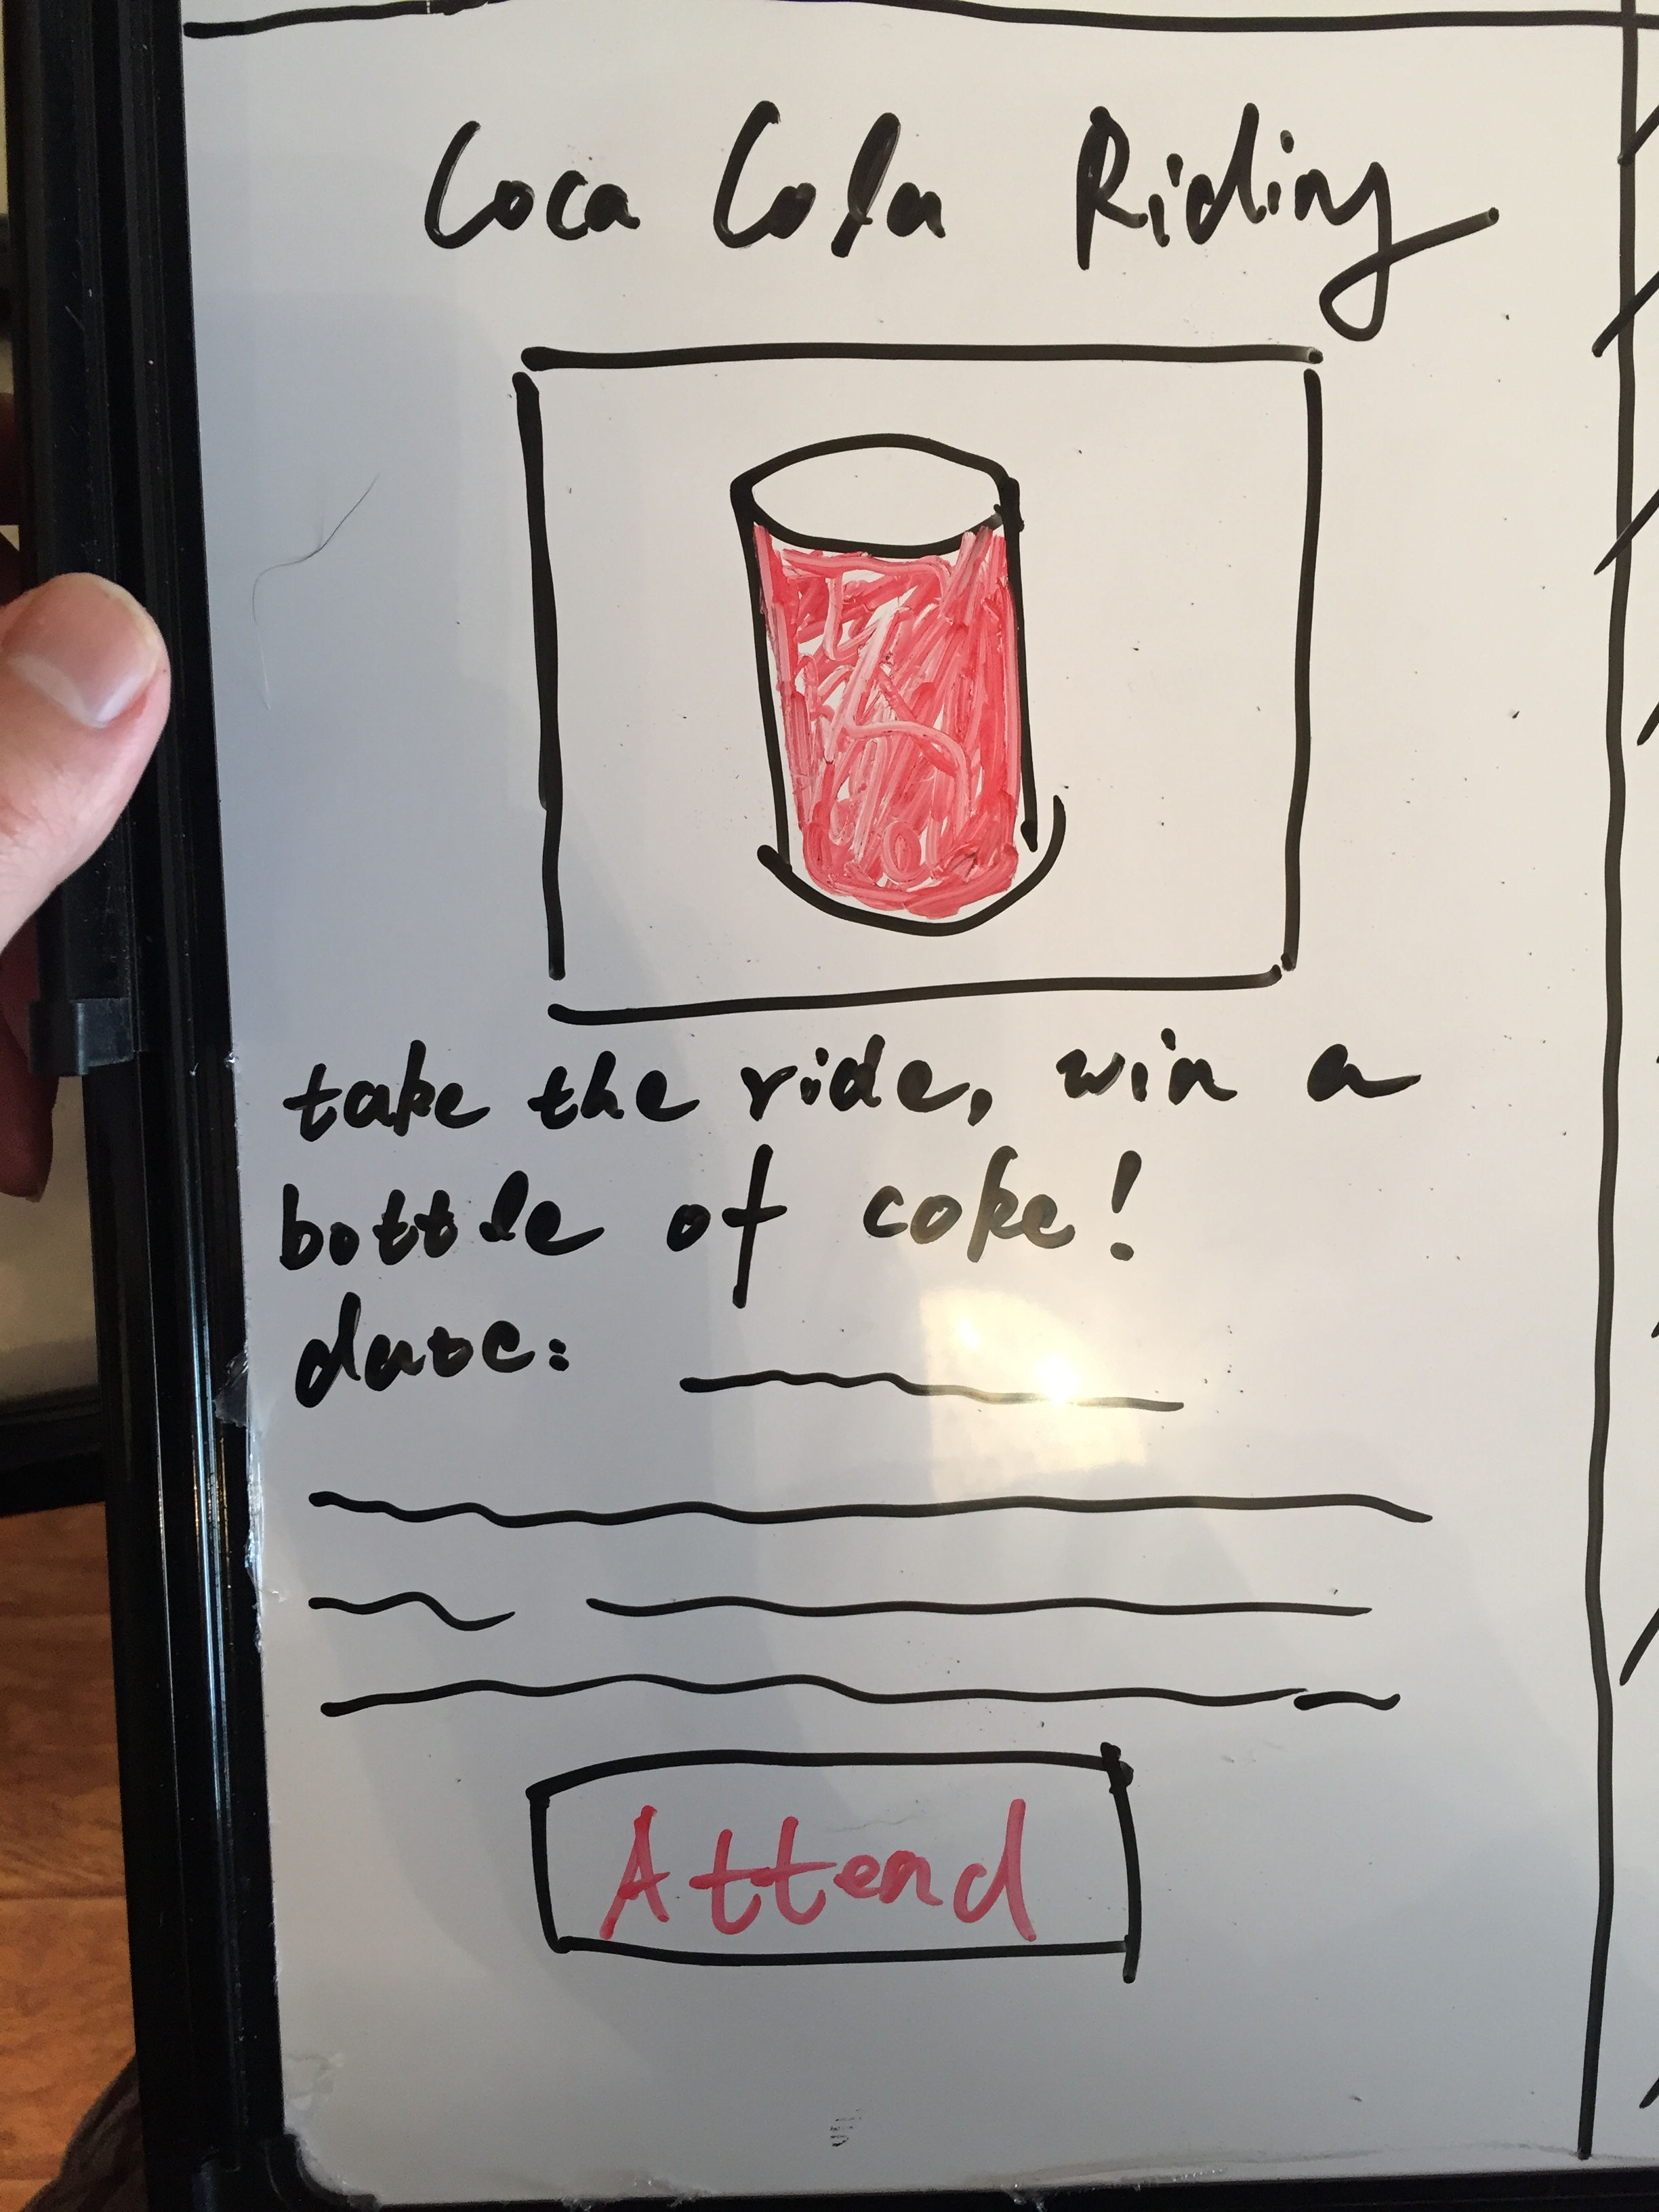 Coca Cola Riding
take the ride, win a
bottle of coke!
date:
Attend